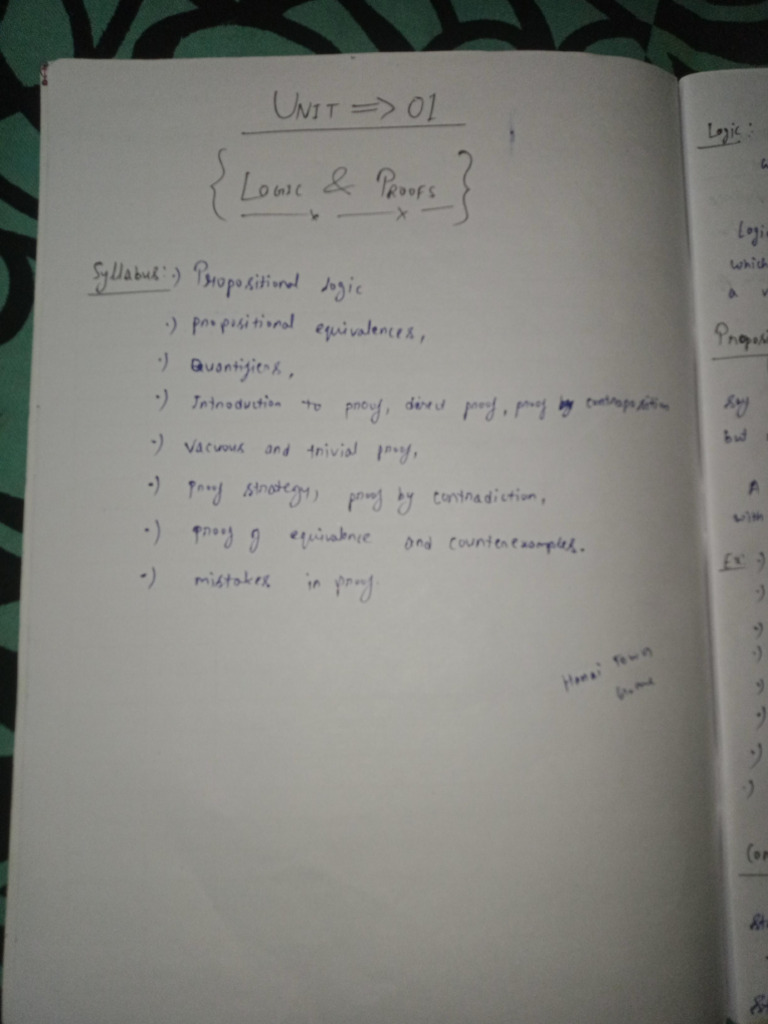 UNIT => 01
{ LOGIC & PROOFS }
Syllabus :·) Propositional Logic
·) propositional equivalences,
·) Quantifiers,
·) Introduction to proof, direct proof, proof by contraposition
·) Vacuous and trivial proof,
·) Proof strategy, proof by contradiction,
·) proof of equivalence and counterexamples.
·) mistakes in proof.
Town
Logic :
Logi
which
a
Proposi
say
but
A
with
Ex: ·)
·)
·)
·)
·)
·)
·)
·)
Con